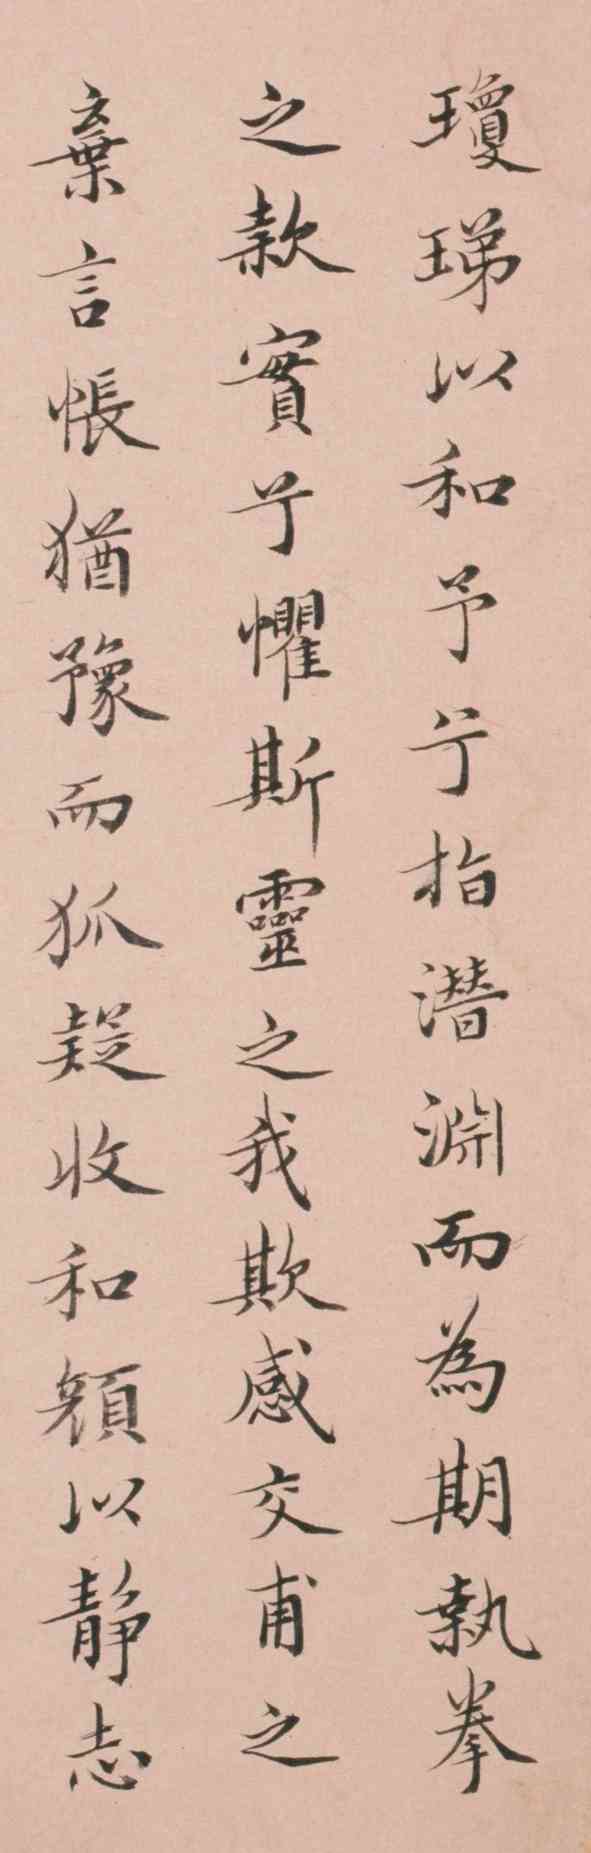 瓊珶以和予兮指潛淵而為期執拳
之款實兮懼斯靈之我欺感交甫之
棄言悵猶豫而狐疑收和顏以靜志